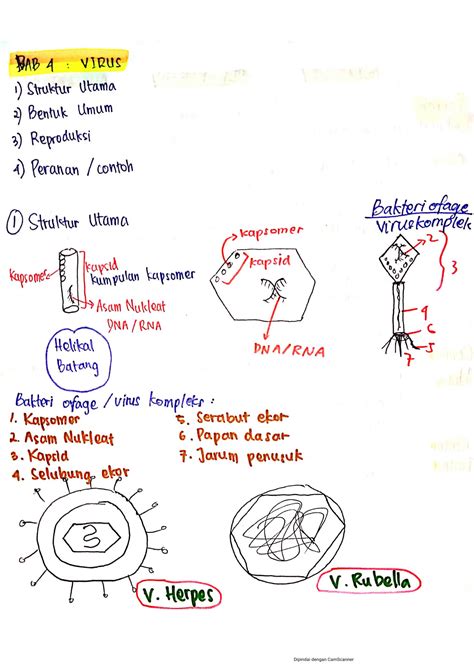 BAB 4 : VIRUS
1) Struktur Utama
2) Bentuk Umum
3) Reproduksi
4) Peranan / contoh
① Struktur Utama
Bakteri ofage
Virus komplek
Kapsomer
kapsid
kumpulan kapsomer
Asam Nukleat
DNA/RNA
Helikal
Batang
kapsomer
kapsid
DNA/RNA
2
3
4
6
5
7
Bakteri ofage / virus kompleks :
1. Kapsomer
2. Asam Nukleat
3. Kapsid
4. Selubung ekor
5. Serabut ekor
6. Papan dasar
7. Jarum penusuk
V. Herpes
V. Rubella
Dipindai dengan CamScanner